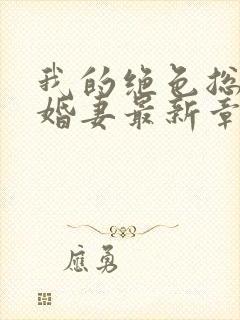 我的绝色总
婚妻最新章
应勇